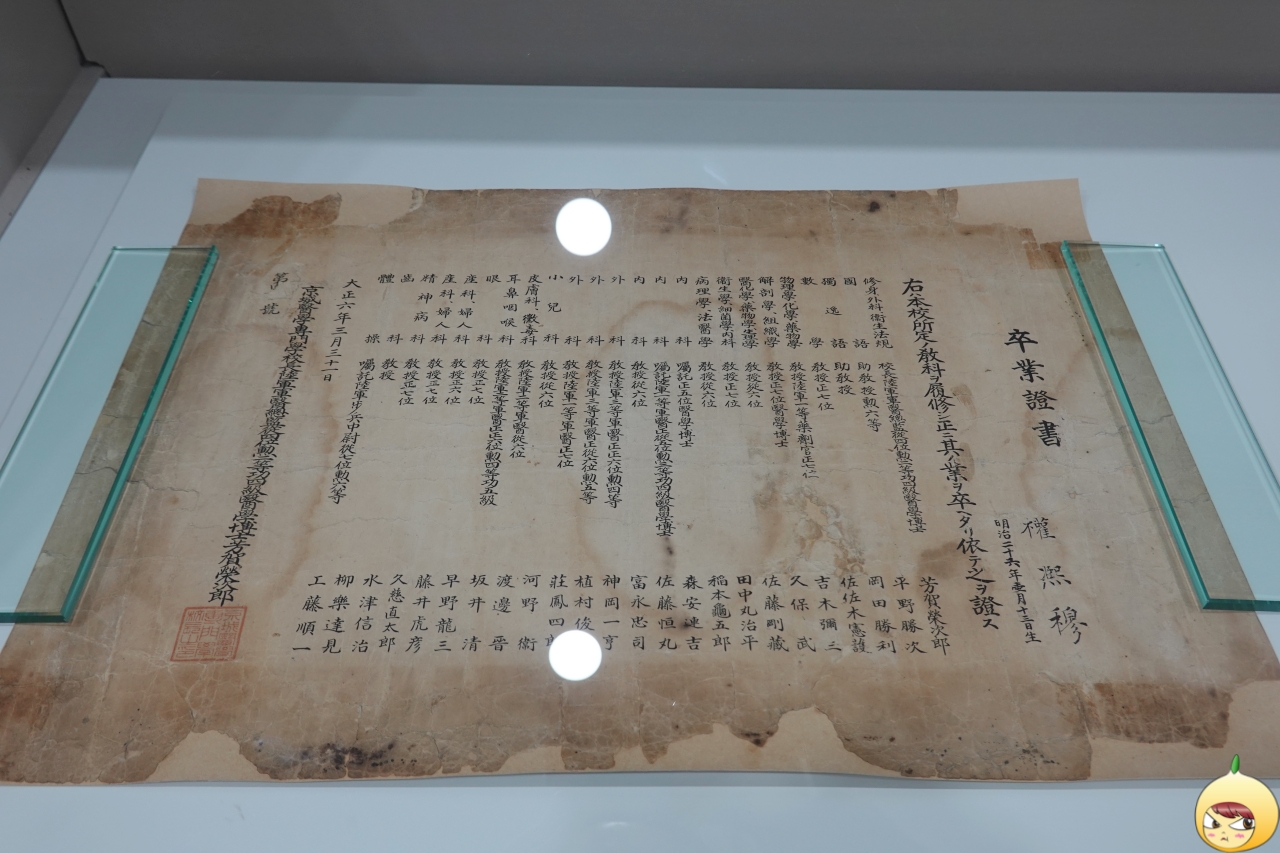 卒業證書
權熙穆
明治二十六年壹月十三日生
右ハ本校所定ノ敎科ヲ履修シ正ニ其ノ業ヲ卒ヘタリ依テ之ヲ證ス
修身外科衞生法規 校長陸軍軍醫總監從四位勳二等功四級醫學博士 芳賀榮次郎
國語 助敎授勳六等 平野勝次
獨逸語 助敎授 岡田勝利
數學 敎授正七位 佐佐木憲護
物理學化學藥物學 敎授陸軍一等藥劑官正七位 吉木彌三
解剖學、組織學 敎授正七位醫學博士 久保武
醫化學藥物學生理學 敎授從六位 佐藤剛藏
衞生學細菌學內科 敎授正七位 田中丸治平
病理學法醫學 敎授從六位 稻本龜五郎
內科 囑託正五位醫學博士 森安連吉
內科 囑託陸軍一等軍醫正從五位勳三等功四級醫學博士 佐藤恒丸
內科 敎授從六位 富永忠司
外科 敎授陸軍二等軍醫正正六位勳四等 神岡一亨
外科 敎授陸軍三等軍醫正從六位勳五等 植村俊
外科 敎授陸軍一等軍醫正七位 莊鳳四郎
小兒科 敎授從六位 河野衞
皮膚科、黴毒科 敎授陸軍二等軍醫從六位 渡邊晋
耳鼻咽喉科 敎授陸軍二等軍醫正正六位勳四等功五級 坂井清
眼科 敎授正七位 早野龍三
產科、婦人科 敎授正六位 藤井虎彥
產科、婦人科 敎授正七位 久慈直太郎
精神病科 敎授正六位 水津信治
齒科 敎授正七位 柳樂達見
體操 敎授 囑託陸軍步兵中尉從七位勳六等 工藤順一
大正六年三月三十一日
京城醫學專門學校長陸軍軍醫總監從四位勳二等功四級醫學博士芳賀榮次郎
第 號